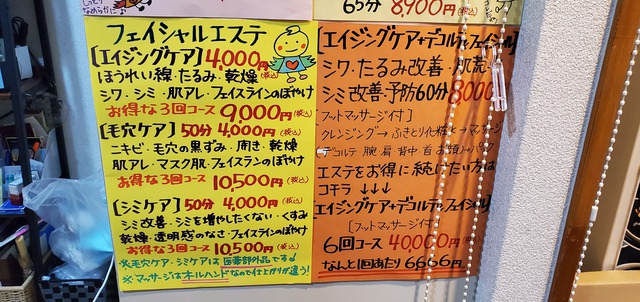 なめらかに♪
65分 8,900円
フェイシャルエステ
[エイジングケア] 4,000円(税込)
ほうれい線・たるみ・乾燥
シワ・シミ・肌アレ・フェイスラインのぼやけ
お得な3回コース 9,000円(税込)
[毛穴ケア] 50分 4,000円(税込)
ニキビ・毛穴の黒ずみ・開き・乾燥
肌アレ・マスク肌・フェイスラインのぼやけ
お得な3回コース 10,500円(税込)
[シミケア] 50分 4,000円(税込)
シミ改善・シミを増やしたくない・くすみ
乾燥・透明感のなさ・フェイスラインのぼやけ
お得な3回コース 10,500円(税込)
※毛穴ケア・シミケアは医薬部外品です♪
※マッサージはオールハンドなので仕上がりが違う!
[エイジングケア+デコルテ+フェイシャル]
シワ・たるみ改善・肌荒
シミ改善・予防 60分 8,000
[フットマッサージ付]
クレンジング→ふきとり化粧水→マッサージ
デコルテ 腕 肩 背中 首 お顔 パック
エステをお得に続けたい方は
コチラ ↓↓↓
[エイジングケア+デコルテ+フェイシャル]
[フットマッサージ付]
6回コース 40,000円
なんと1回あたり 6,666円